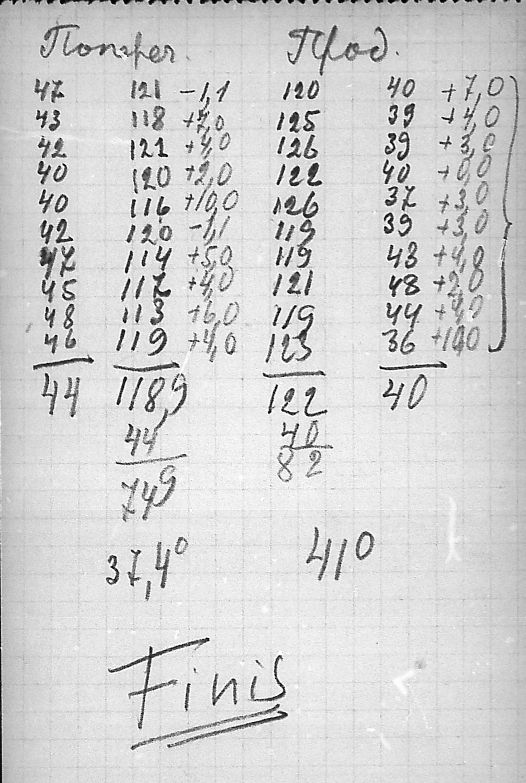 Попереч. Прод.
47 121 -1,1 120 40 +7,0
43 118 +7,0 125 39 +4,0
42 121 +4,0 126 39 +3,0
40 120 +2,0 122 40 +0,0
40 116 +10,0 126 37 +3,0
42 120 -1,1 119 39 +3,0
47 114 +5,0 119 43 +4,0
45 117 +4,0 121 48 +2,0
48 113 +6,0 119 44 +4,0
46 119 +4,0 123 36
44 118,9 122 40
44 40
749 82
37,4° 41°
Finis